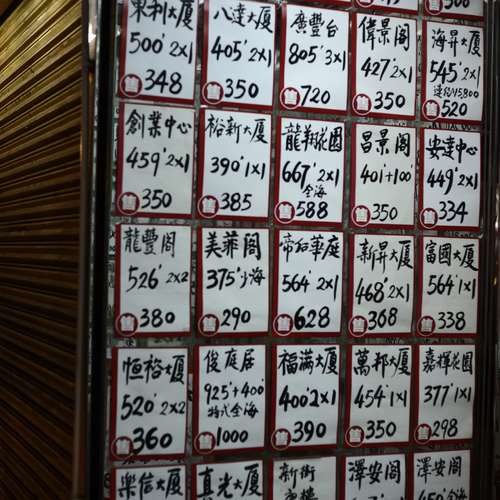 東利大厦
500' 2x1
售 348
八達大厦
405' 2x1
售 350
廣豐台
805' 3x1
售 720
偉景閣
427' 2x1
售 350
海昇大厦
545' 2x1
連約15,800
售 520
創業中心
459' 2x1
售 350
裕新大厦
390' 1x1
售 385
龍翔花園
667' 2x1
全海
售 588
昌景閣
401+100'
售 350
安達中心
449' 2x1
售 334
龍豐閣
526' 2x2
售 380
美華閣
375' 少海
售 290
帝后華庭
564' 2x1
售 628
新昇大厦
468' 2x1
售 368
富國大厦
564' 1x1
售 338
恒裕大厦
520' 2x2
售 360
俊庭居
925'+400'
特式全海
售 1000
福滿大厦
400' 2x1
售 390
萬邦大厦
454' 1x1
售 350
嘉輝花園
377' 1x1
售 298
樂信大厦
真光大厦
新街
澤安閣
澤安閣